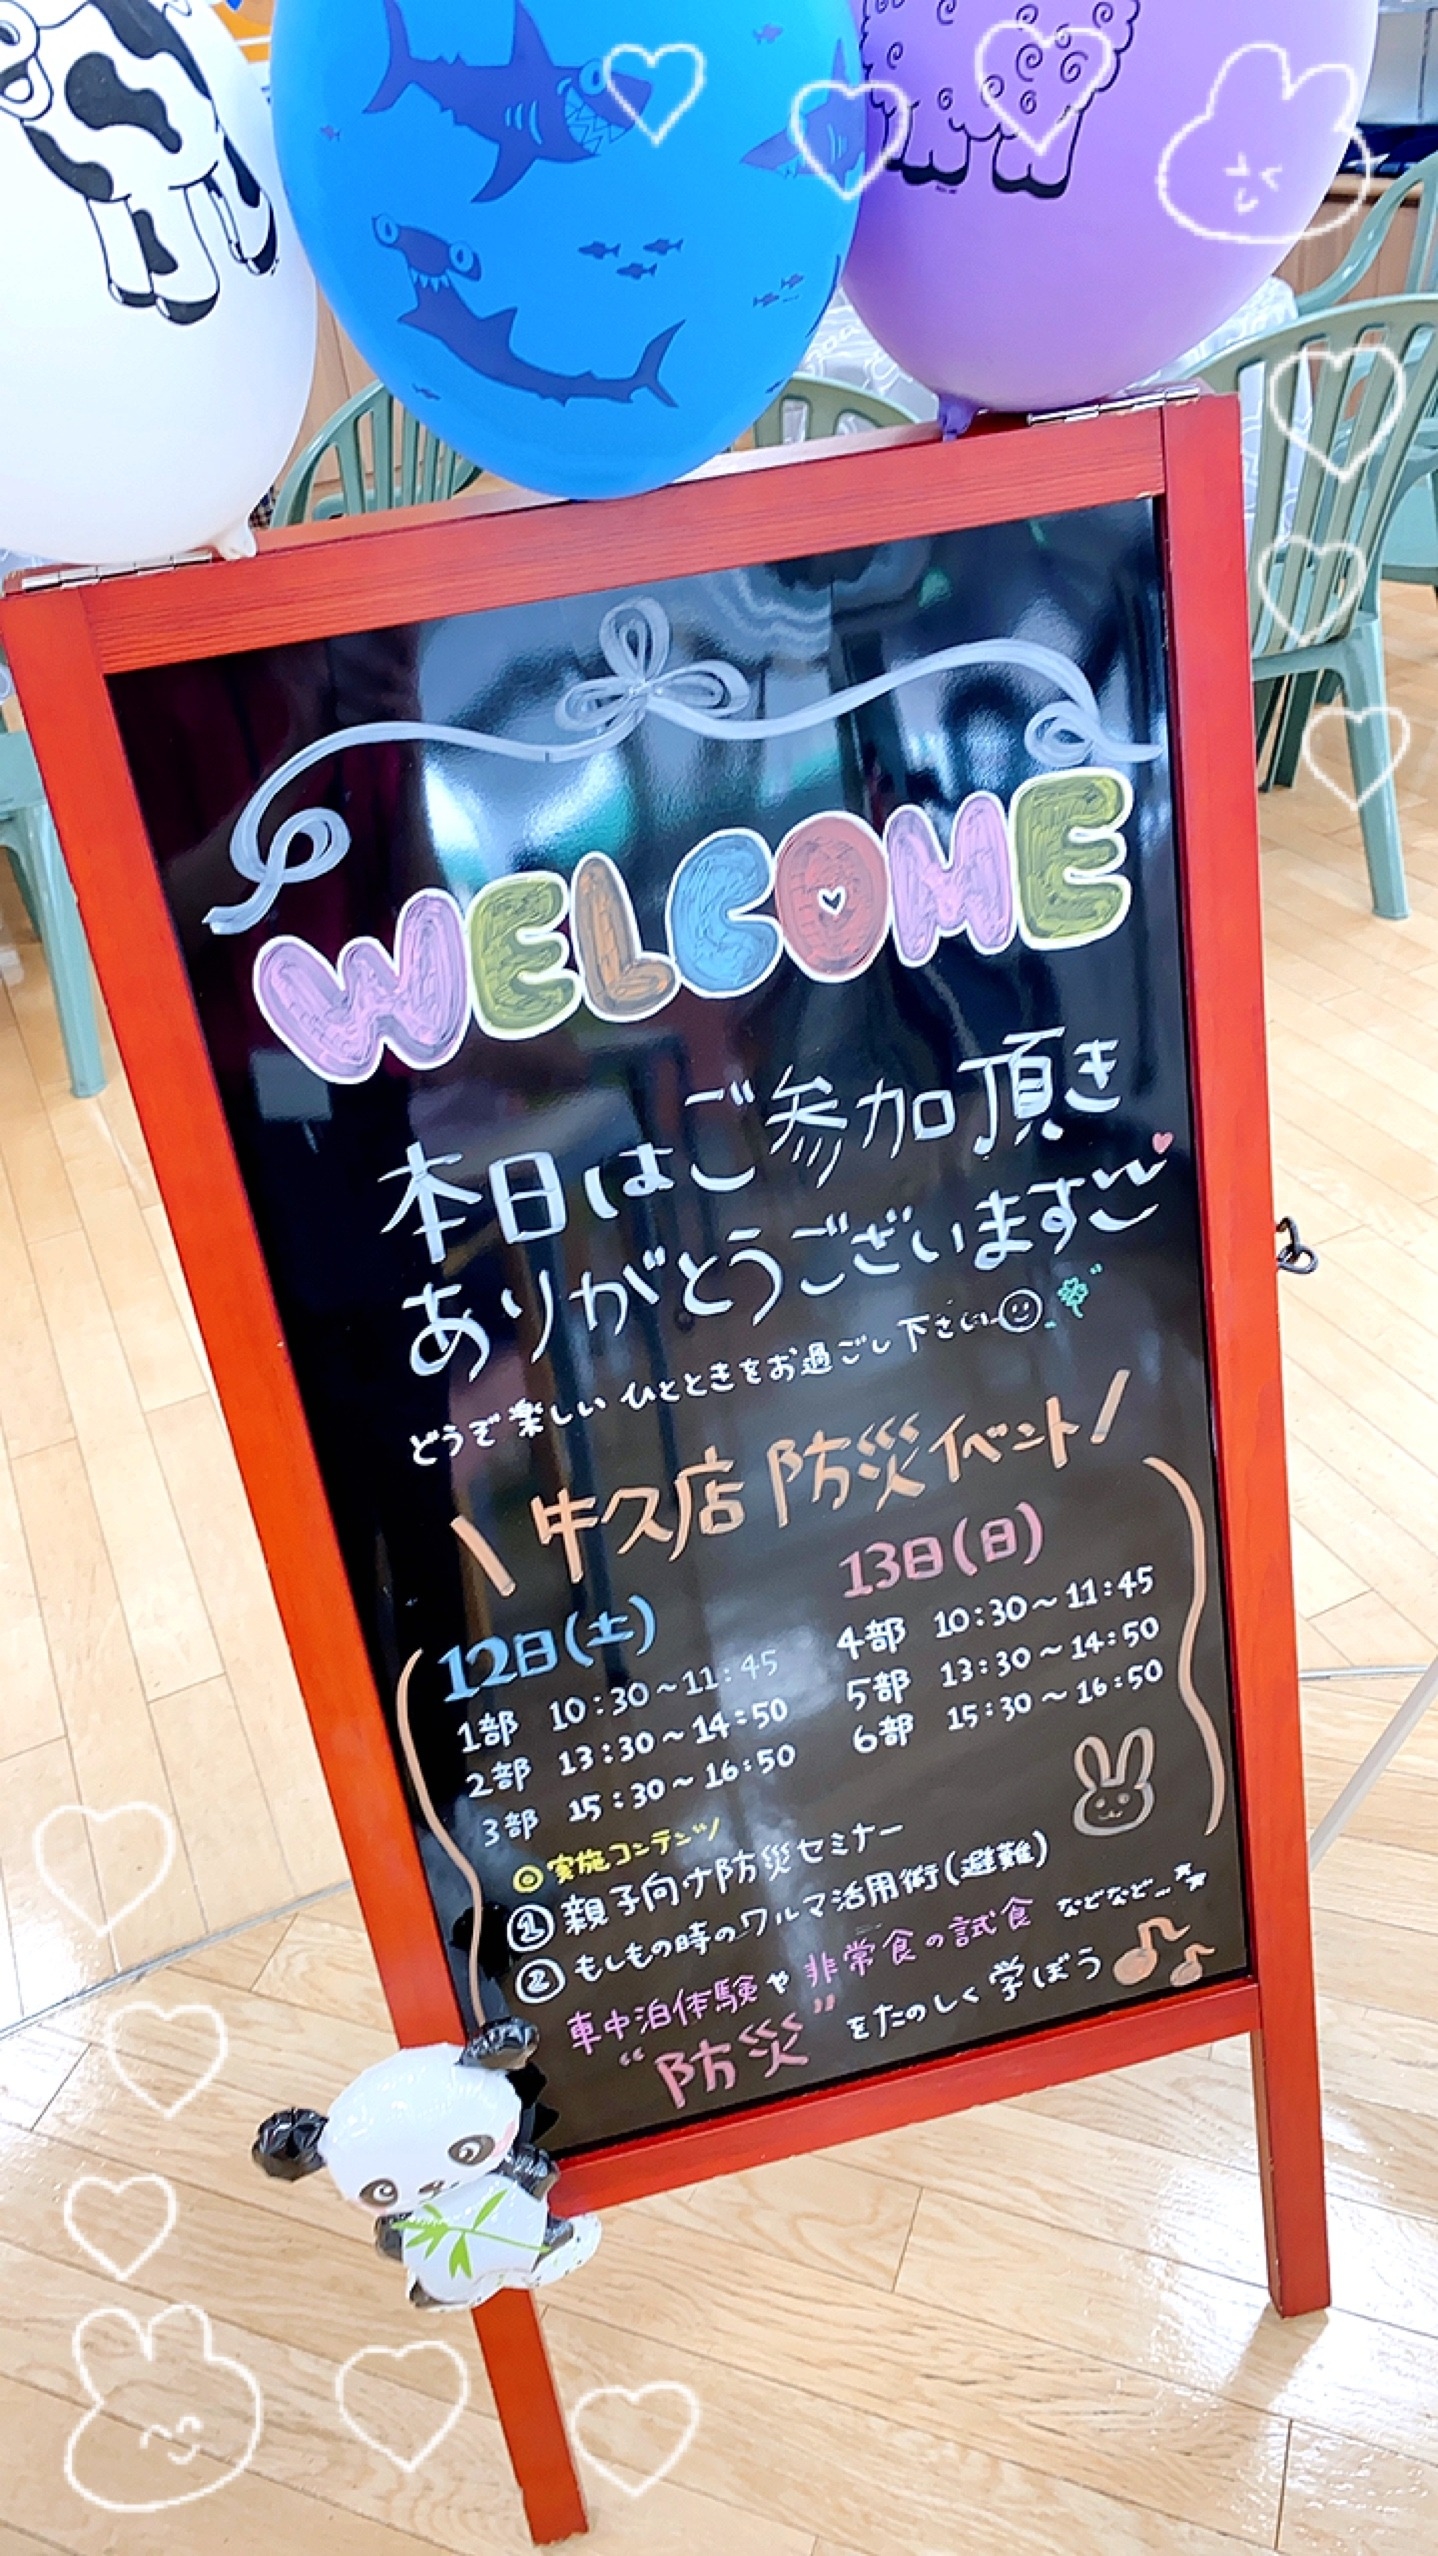 WELCOME
本日はご参加頂き
ありがとうございます
どうぞ楽しいひとときをお過ごし下さい
\ 牛久店 防災イベント /
12日(土)
1部 10:30~11:45
2部 13:30~14:50
3部 15:30~16:50
13日(日)
4部 10:30~11:45
5部 13:30~14:50
6部 15:30~16:50
◎実施コンテンツ
① 親子向け防災セミナー
② もしもの時のクルマ活用術(避難)
車中泊体験や非常食の試食 などなど…
"防災"をたのしく学ぼう